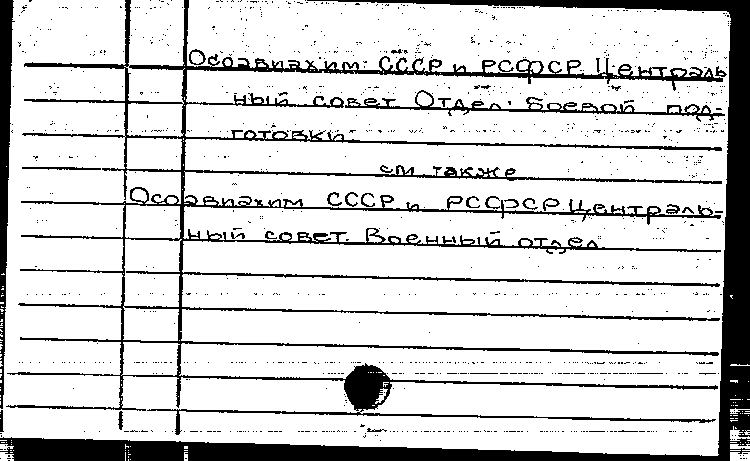 Осоавиахим. СССР и РСФСР. Централь
ный совет. Отдел боевой под-
готовки.
см. также
Осоавиахим СССР и РСФСР. Централь-
ный совет. Военный отдел.